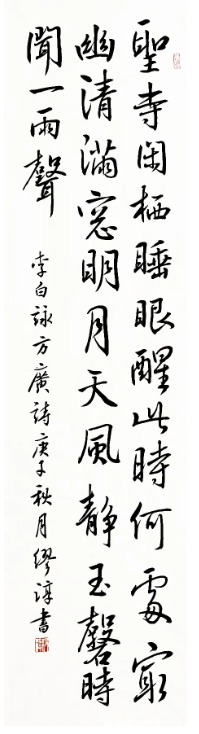 聖寺閑栖睡眼醒此時何處冣
幽清滿窓明月天風静玉磬時
聞一兩聲
李白詠方廣詩庚子秋月繆諄書